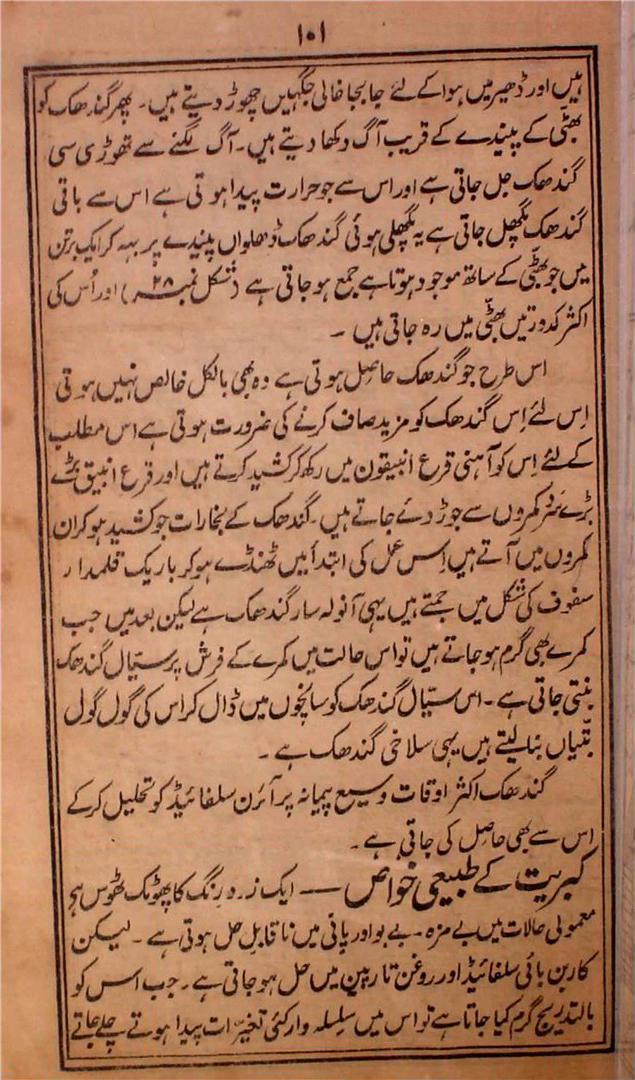 ۱۰۱
ہیں اور ڈھیر میں ہوا کے لئے جابجا خالی جگہیں چھوڑ دیتے ہیں۔ پھر گندھک کو
بھٹی کے پیندے کے قریب آگ دکھا دیتے ہیں۔ آگ لگنے سے تھوڑی سی
گندھک جل جاتی ہے اور اس سے جو حرارت پیدا ہوتی ہے اس سے باقی
گندھک پگھل جاتی ہے یہ پگھلی ہوئی گندھک ڈھلواں پیندے پر بہہ کر ایک برتن
میں جو بھٹی کے ساتھ موجود ہوتا ہے جمع ہو جاتی ہے (شکل نمبر ۲۸) اور اُس کی
اکثر کدورتیں بھٹی میں رہ جاتی ہیں ۔
اس طرح جو گندھک حاصل ہوتی ہے وہ بھی بالکل خالص نہیں ہوتی
اِس لئے اِس گندھک کو مزید صاف کرنے کی ضرورت ہوتی ہے اس مطلب
کے لئے اِس کو آہنی قرع انبیقون میں رکھ کر کشید کرتے ہیں اور قرع انبیق بڑے
بڑے سرد کمروں سے جوڑ دئے جاتے ہیں۔ گندھک کے بخارات جو کشید ہو کر ان
کمروں میں آتے ہیں اِس عمل کی ابتدأ میں ٹھنڈے ہو کر باریک قلمدار
سفوف کی شکل میں جمتے ہیں یہی آنولہ سار گندھک ہے لیکن بعد میں جب
کمرے بھی گرم ہو جاتے ہیں تو اس حالت میں کمرے کے فرش پر سیّال گندھک
بنتی جاتی ہے۔ اس سیّال گندھک کو سانچوں میں ڈال کر اس کی گول گول
بتّیاں بنا لیتے ہیں یہی سلاخی گندھک ہے ۔
گندھک اکثر اوقات وسیع پیمانہ پر آئرن سلفائیڈ کو تحلیل کر کے
اس سے بھی حاصل کی جاتی ہے ۔
کبریت کے طبیعی خواص — ایک زرد رنگ کا پھوٹک ٹھوس ہے
معمولی حالات میں بے مزہ۔ بے بو اور پانی میں ناقابل حل ہوتی ہے۔ لیکن
کاربن بائی سلفائیڈ اور روغن تارپین میں حل ہو جاتی ہے۔ جب اس کو
بالتدریج گرم کیا جاتا ہے تو اس میں سلسلہ وار کئی تغیّرات پیدا ہوتے چلے جاتے